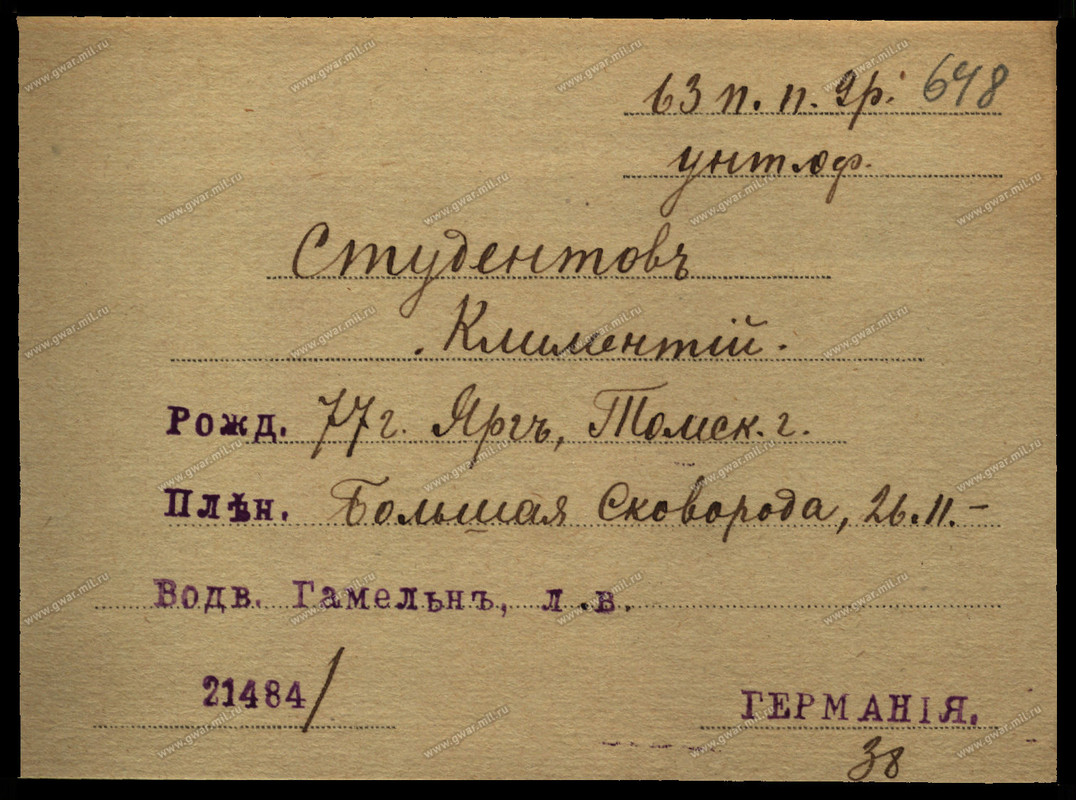 63 п. п. 9р. 648
унт.оф.
Студентовъ
Климентій.
Рожд. 77 г. Яргъ, Томск. г.
Плѣн. Большая Сковорода, 26.11.-
Водв. Гамельнъ, л.в.
21484/
ГЕРМАНІЯ.
38
www.gwar.mil.ru